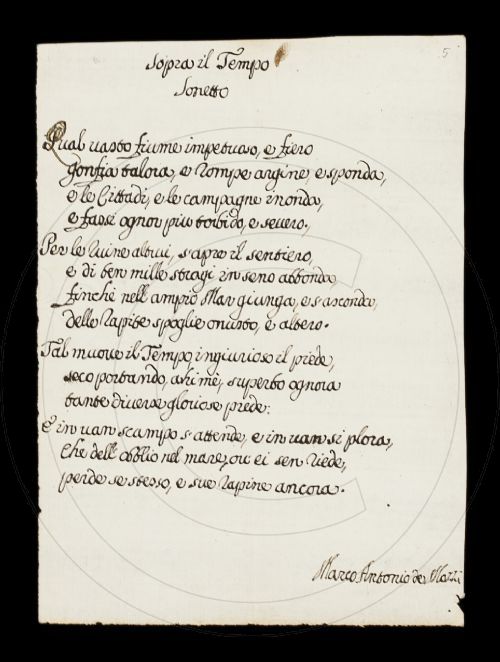 5
Sopra il Tempo
Sonetto
Qual uasto fiume impetuoso, e fiero
gonfia talora, e rompe argine, e sponda,
e le Cittadi, e le campagne inonda,
e fassi ognor piu torbido, e seuero.
Per le ruine altrui, s'apre il sentiero,
e di ben mille stragi in seno abbonda
finchè nell'ampio Mar giunga, e s'asconda,
delle rapite spoglie onusto, e altero.
Tal muoue il Tempo ingiurioso il piede,
seco portando, ahi me, superbo ognora
tante diuerse gloriose prede.
E in uan scampo s'attende, e in uan si plora,
Che dell'obblio nel mare, ou ei sen riede,
perde se stesso, e sue rapine ancora.
Marco Antonio de